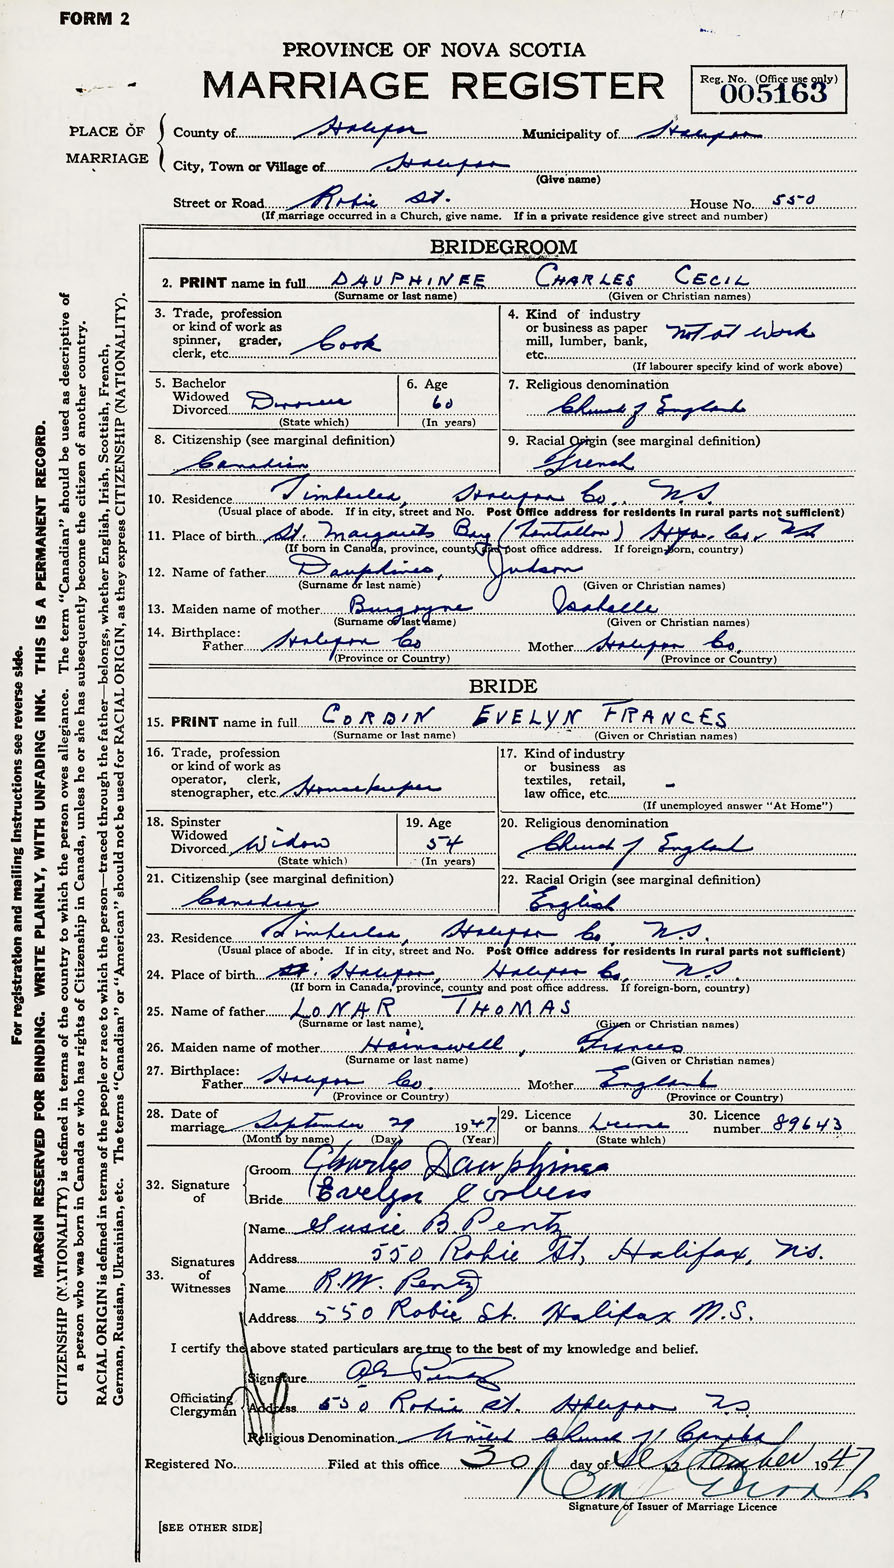 FORM 2
PROVINCE OF NOVA SCOTIA
MARRIAGE REGISTER
Reg. No. (Office use only)
005163
PLACE OF MARRIAGE
County of Halifax Municipality of Halifax
City, Town or Village of Halifax
(Give name)
Street or Road Robie St. House No. 550
(If marriage occurred in a Church, give name. If in a private residence give street and number)
BRIDEGROOM
2. PRINT name in full DAUPHINEE CHARLES CECIL
(Surname or last name) (Given or Christian names)
3. Trade, profession or kind of work as spinner, grader, clerk, etc. Cook
4. Kind of industry or business as paper mill, lumber, bank, etc. not at work
(If labourer specify kind of work above)
5. Bachelor Widowed Divorced Divorcee
(State which)
6. Age 60
(In years)
7. Religious denomination
Church of England
8. Citizenship (see marginal definition)
Canadian
9. Racial Origin (see marginal definition)
French
10. Residence Timberlea, Halifax Co., N.S.
(Usual place of abode. If in city, street and No. Post Office address for residents in rural parts not sufficient)
11. Place of birth St. Margarets Bay (Tantallon) Hfx. Co. N.S.
(If born in Canada, province, county and post office address. If foreign-born, country)
12. Name of father Dauphinee, Judson
(Surname or last name) (Given or Christian names)
13. Maiden name of mother Burgoyne Isabelle
(Surname or last name) (Given or Christian names)
14. Birthplace:
Father Halifax Co Mother Halifax Co.
(Province or Country) (Province or Country)
BRIDE
15. PRINT name in full CORBIN EVELYN FRANCES
(Surname or last name) (Given or Christian names)
16. Trade, profession or kind of work as operator, clerk, stenographer, etc. Housekeeper
17. Kind of industry or business as textiles, retail, law office, etc. -
(If unemployed answer "At Home")
18. Spinster Widowed Divorced Widow
(State which)
19. Age 54
(In years)
20. Religious denomination
Church of England
21. Citizenship (see marginal definition)
Canadian
22. Racial Origin (see marginal definition)
English
23. Residence Timberlea, Halifax Co. N.S.
(Usual place of abode. If in city, street and No. Post Office address for residents in rural parts not sufficient)
24. Place of birth Halifax, Halifax Co, N.S.
(If born in Canada, province, county and post office address. If foreign-born, country)
25. Name of father LONAR THOMAS
(Surname or last name) (Given or Christian names)
26. Maiden name of mother Frances
(Surname or last name) (Given or Christian names)
27. Birthplace:
Father Halifax Co. Mother England
(Province or Country) (Province or Country)
28. Date of marriage September 29 1947
(Month by name) (Day) (Year)
29. Licence or banns License
(State which)
30. Licence number 89643
32. Signature of
Groom Charles Dauphinee
Bride Evelyn
33. Signatures of Witnesses
Name Susie B. Pentz
Address 550 Robie St, Halifax, N.S.
Name R.W. Pentz
Address 550 Robie St. Halifax N.S.
I certify the above stated particulars are true to the best of my knowledge and belief.
Officiating Clergyman
Signature Pentz
Address 550 Robie St. Halifax N.S.
Religious Denomination United Church of Canada
Registered No. Filed at this office 30 day of September 1947
Signature of Issuer of Marriage Licence
[SEE OTHER SIDE]
For registration and mailing instructions see reverse side.
MARGIN RESERVED FOR BINDING. WRITE PLAINLY, WITH UNFADING INK. THIS IS A PERMANENT RECORD.
CITIZENSHIP (NATIONALITY) is defined in terms of the country to which the person owes allegiance. The term "Canadian" should be used as descriptive of
a person who was born in Canada or who has rights of Citizenship in Canada, unless he or she has subsequently become the citizen of another country.
RACIAL ORIGIN is defined in terms of the people or race to which the person—traced through the father—belongs, whether English, Irish, Scottish, French,
German, Russian, Ukrainian, etc. The terms "Canadian" or "American" should not be used for RACIAL ORIGIN, as they express CITIZENSHIP (NATIONALITY).